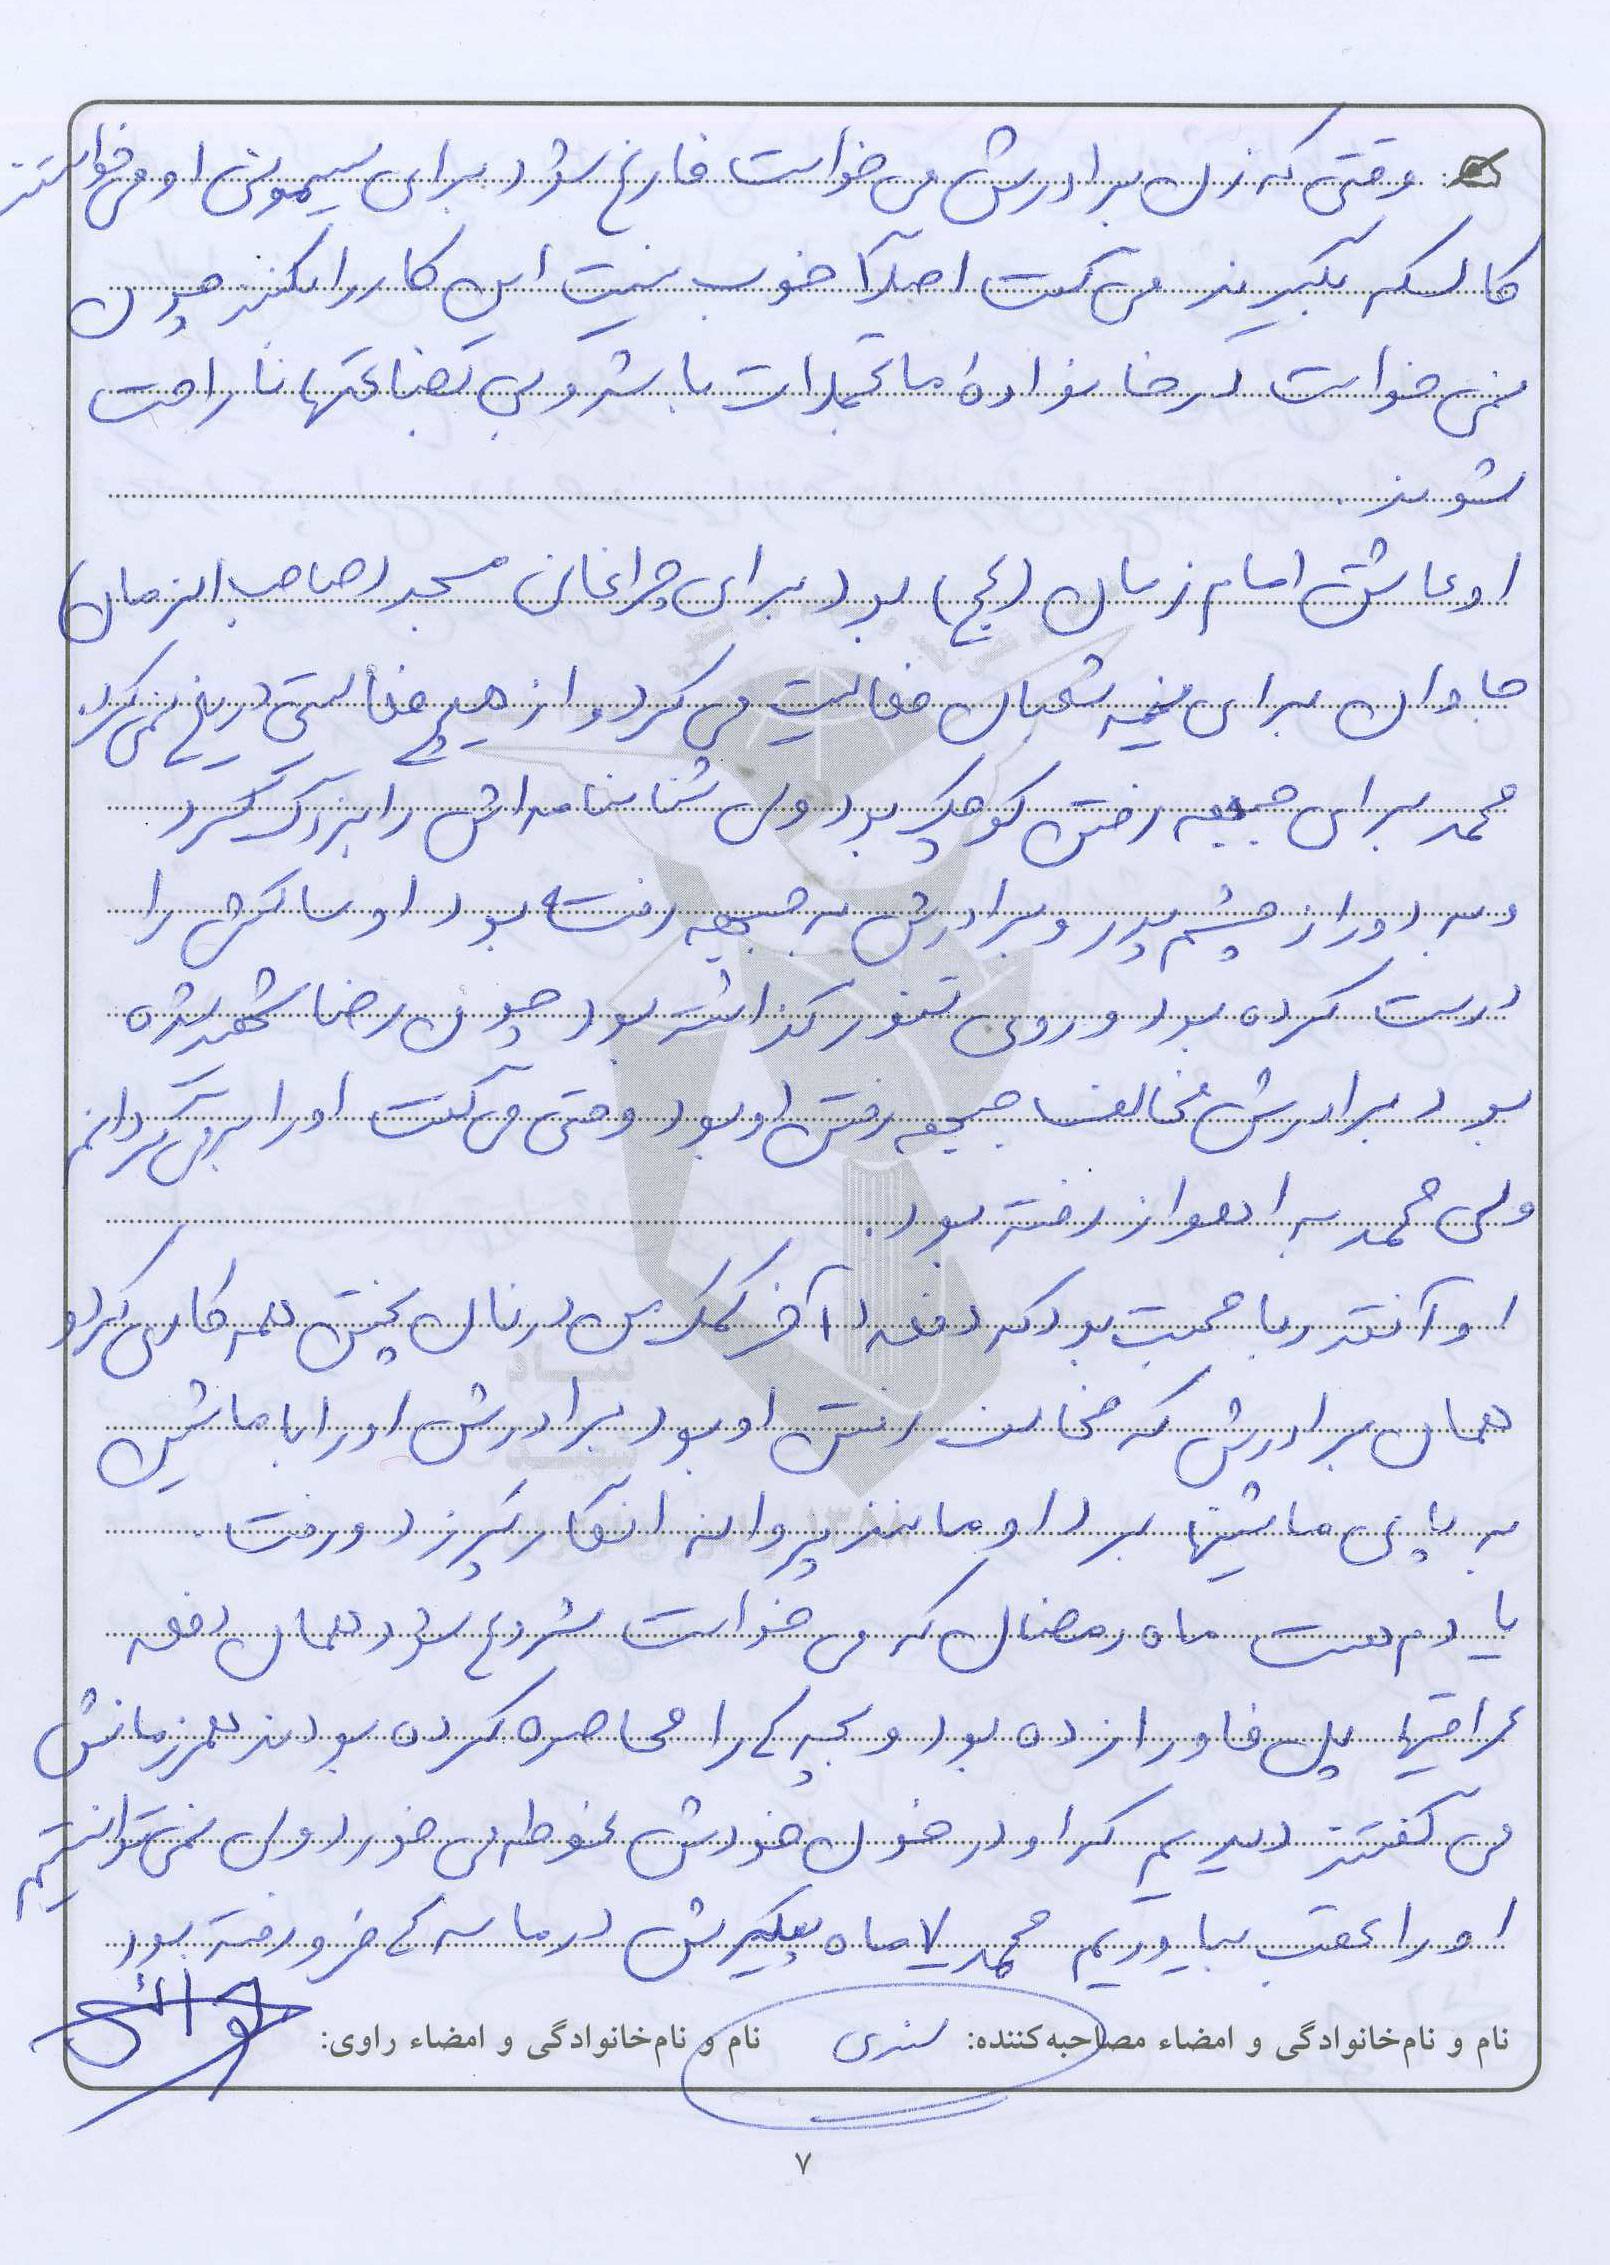 وقتی که زن برادرش می خواست فارغ شود برای سیمونی او می خواستند
کالسکه بگیریند می گفت اصلاً خوب نیست این کار را نکنید چون
نمی خواست در خانواده ما تجملات باشد و بی بضاعتها ناراحت
شوند.
او عاشق امام زمان (عج) بود برای چراغان مسجد (صاحب الزمان)
جاوان برای نیمه شعبان فعالیت می کرد و از هیچ فعالیتی دریغ نمی کرد.
محمد برای جبهه رفتن کوچک بود ولی شناسنامه اش را بزرگ کرد
و به دور از چشم پدر و برادرش به جبهه رفته بود او ساکش را
درست کرده بود و روی تنور گذاشته بود چون رضا شهید شده
بود برادرش مخالف جبهه رفتن او بود وقتی می گفت او را برمی گردانم
ولی محمد به اهواز رفته بود.
او آنقدر با محبت بود که دفعه آخر کمک من در نان پختن همه کاری کرد و
همان برادرش که مخالف رفتن او بود برادرش او را با ماشین
به پای ماشینها برد او مانند پروانه انگار پر زد و رفت.
یادم هست ماه رمضان که می خواست شروع شود همان دفعه
عراقیها پل فاو را زده بود و بچه ها را محاصره کرده بودند همرزمانش
می گفتند دیدیم که او در خون خودش غوطه می خورد ولی نمی توانستیم
او را عقب بیاوریم محمد ۷ ماه پیکرش در ماسه ها فرو رفته بود
نام و نام‌خانوادگی و امضاء مصاحبه‌کننده: نام و نام‌خانوادگی و امضاء راوی:
۷